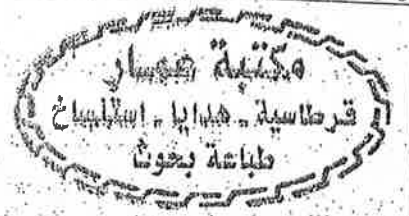 مكتبة مسار
قرطاسية - هدايا - استنساخ
طباعة بحوث